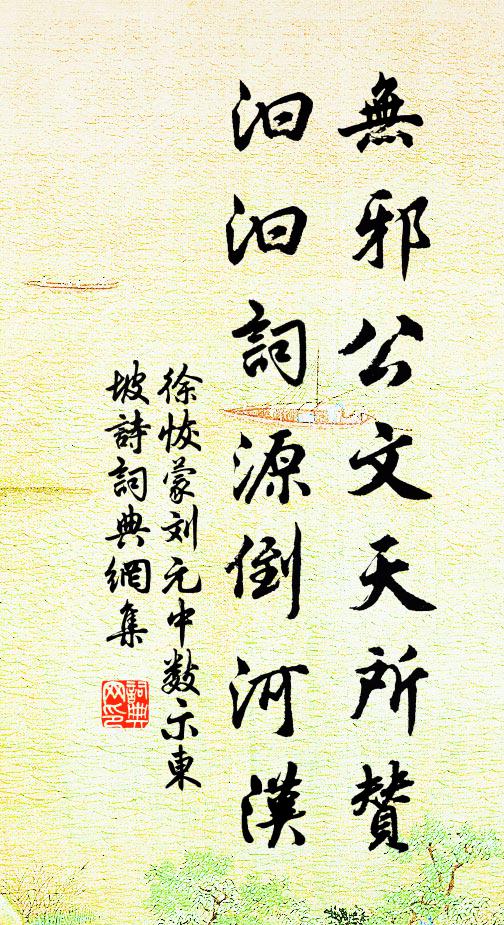 無邪公文天所贊
汩汩詞源倒河漢
徐恢蒙刘元中数示東
坡詩詞典網集
詞典
网印